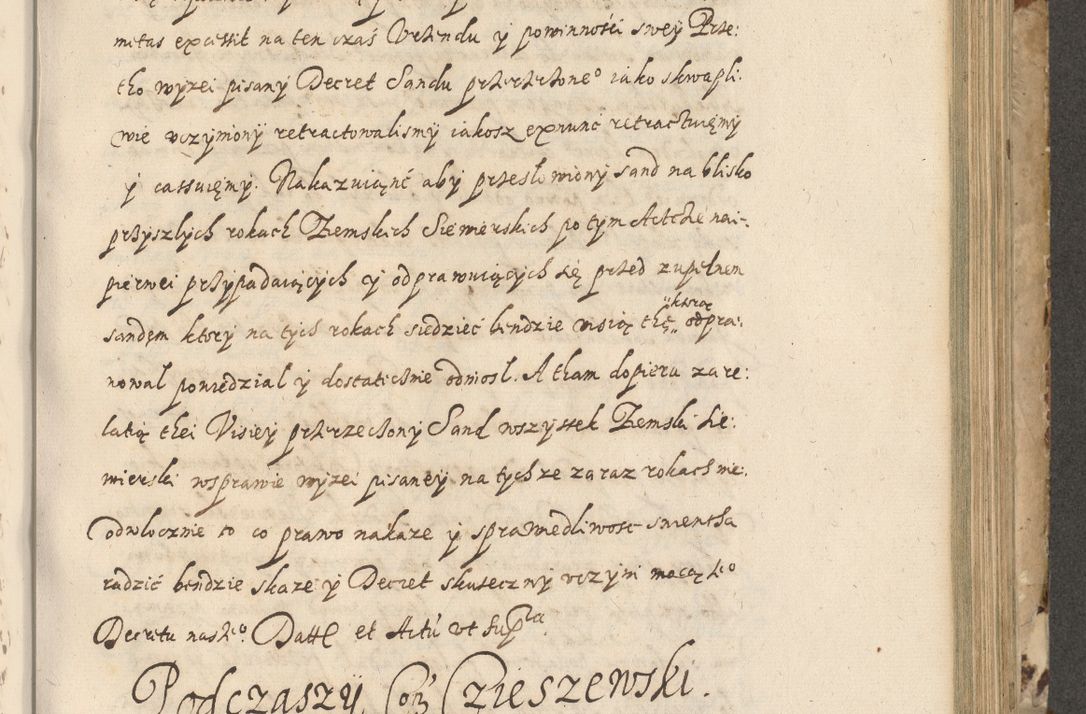 metas excessit na ten czas Vrzendu y powinności swey Prze:
tho wyzei pisany Decret Sandu przerzeczone⁰ iako skwapli:
wie vczyniony retractowalismy iakosz exnunc retractuięmy
y cassuięmy. Nakazuiąnć aby przesłowiony sand na blisko
przyszlych rokach Ziemskich Siewierskich po tym Actcie nai:
pierwei przypadaiących y odprawuiących się przed zupełnem
sandem ktory na tych rokach siedzieć bendzie wisią thę ktorą odpra:
wowal powiedzial y dostatecznie odniosl. A tham dopieru za re:
latią thei Visiey przerzeczony Sand wszystek Ziemski Sie:
wierski wsprawie wyzei pisaney na tychze zaraz rokach nie:
odwlocznie to co prawo nakaze y sprawiedliwosc swentha
radzić bendzie skaze y Decret skuteczny vczyni mocą te⁰
Decretu nasze⁰. Datt et Actu vt supra
Podczaszy Czieszewski.